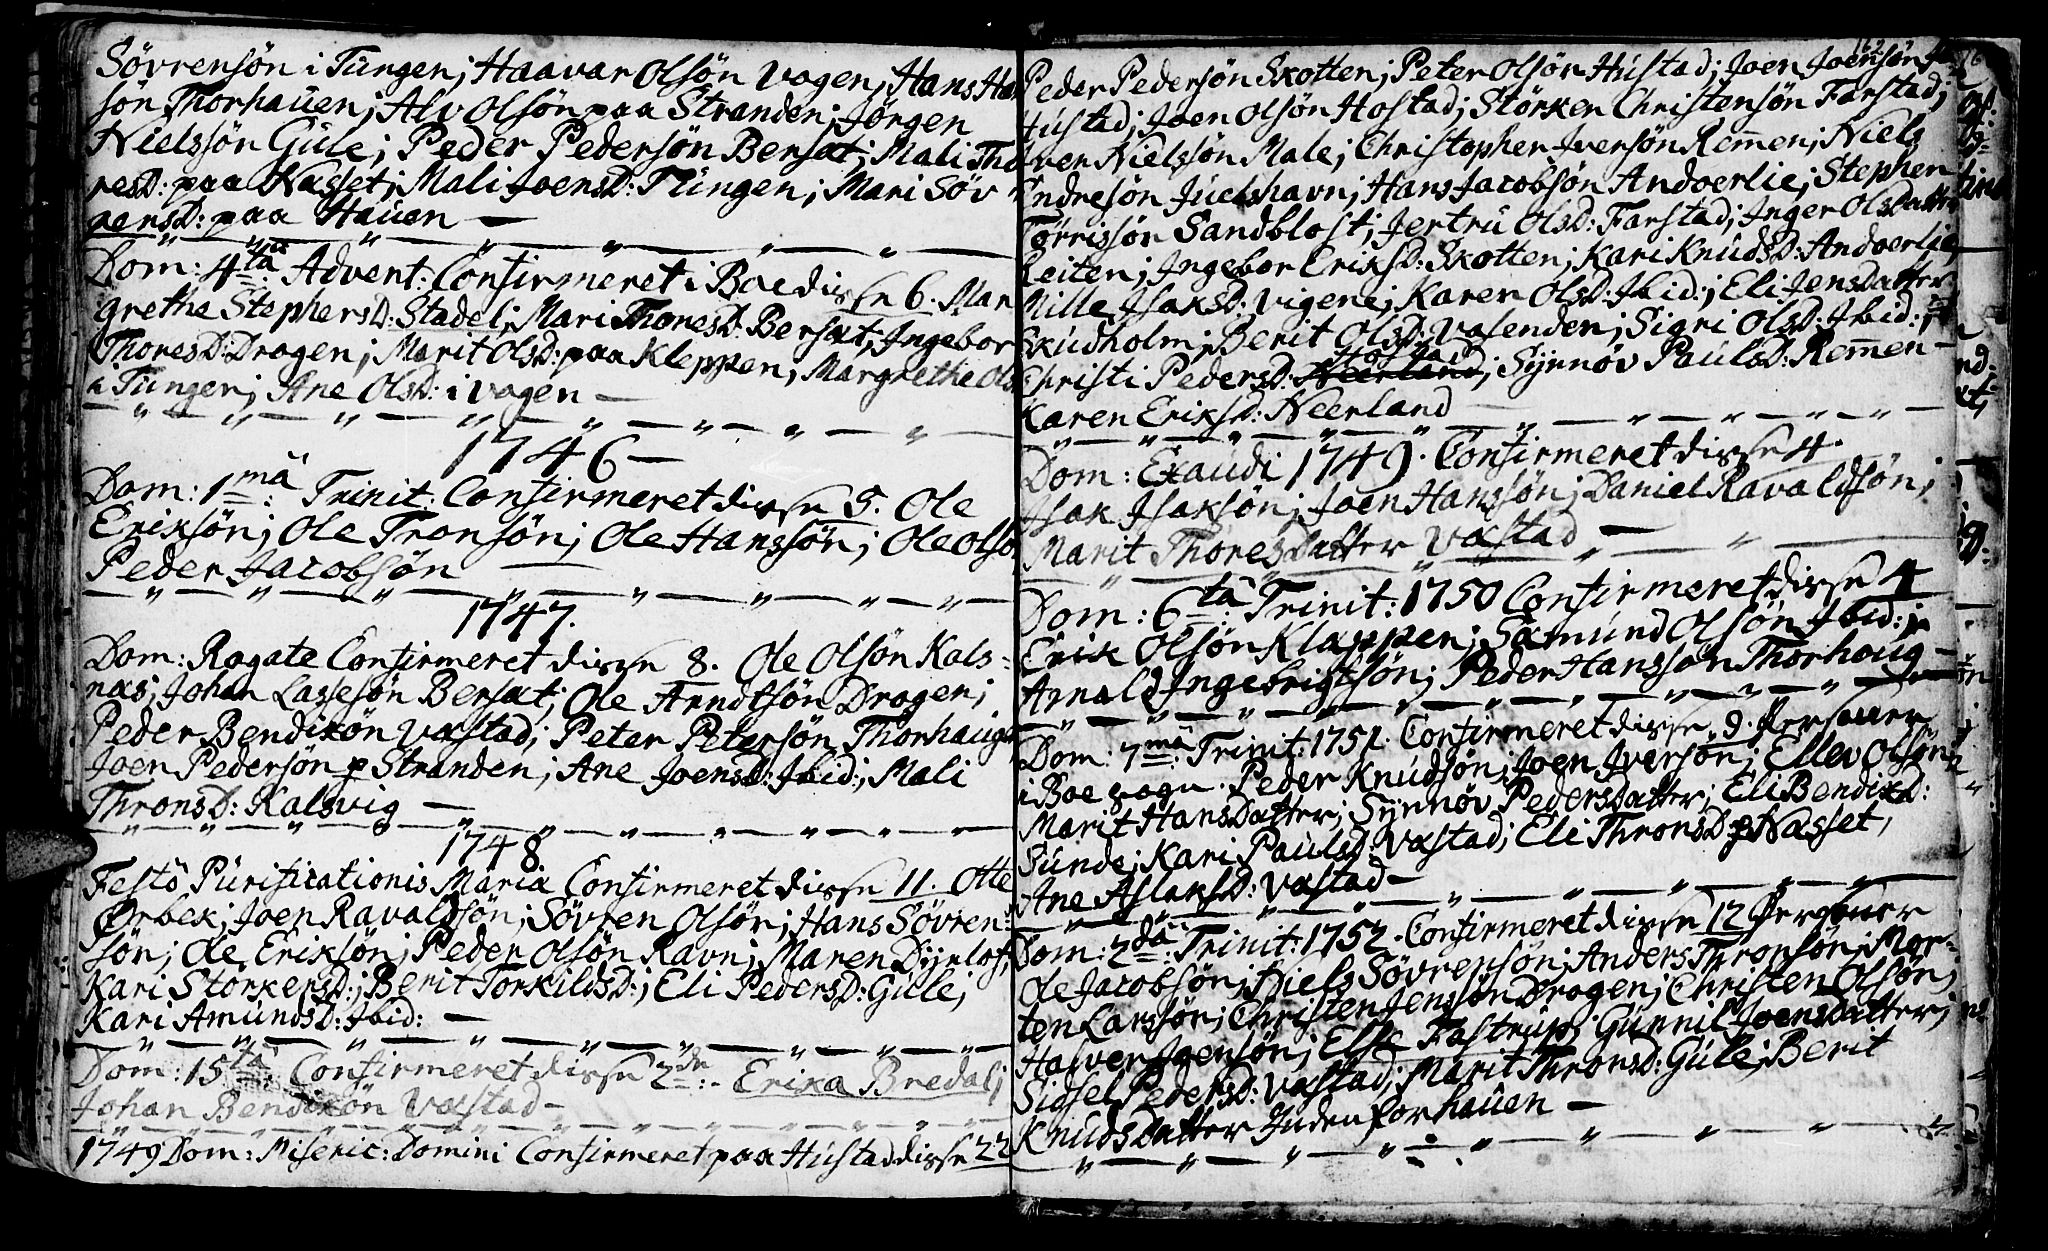 Sövrensön i Tüngen; Haavar Olsön Vogen; Hans Han
sön Thorhaüen; Alv Olsön paa Stranden; Jörgen
Nielssön Güle; Peder Pedersön Bersæt; Mali Tho
resD: paa Næsset; Mali JoensD: Tüngen; Mari Söv
rensD: paa Haüen —
Dom: 4ta Advent: Confirmeret i Boe disse 6. Mar
grethe StephensD: Stadel; Mari ThoresD: Bersæt; Ingebor
ThoresD: Dragen; Marit OlsD: paa Kleppen; Margrethe Ols
i Tüngen; Ane OlsD: i Vogen —
1746 —
Dom: 1ma Trinit: Confirmeret disse 5. Ole
Eriksön; Ole Tronsön; Ole Hanssön; Ole Olsö
Peder Jacobsön —
1747.
Dom: Rogate Confirmeret disse 8. Ole Olsön Kals-
næs; Johan Lassesön Bersæt; Ole Arndtsön Dragen;
Peder Bendixön Væstad; Peter Petersön Thorhaug
Joen Pedersön p Stranden; Ane JoensD: Ibid; Mali
ThronsD: Kalsvig —
1748
Festo Pürificationis Mariæ Confirmeret disse 11. Otte
Örbek; Joen Ravaldsön; Sövren Olsön; Hans Sövren-
sön; Ole Eriksön; Peder Olsön Ravn; Maren Dyrlof;
Kari StörkersD:; Berit TorkildsD:; Eli PedersD: Güle;
Kari AmündsD: Ibid: —
Dom: 15ta Confirmeret disse 2de. Erika Bredal;
Johan Bendixön Væstad —
1749 Dom: Miseric: Domini Confirmeret paa Hüstad disse 22
162
Peder Pedersön Skotten; Peter Olsön Hüstad; Joen Joensön
Hüstad; Joen Olsön Hostad; Störker Christensön Farstad;
Iver Nielssön Male; Christopher Iversön Remen; Niels
Endresön Jüelshavn; Hans Jacobsön Andverlie; Stephen
Törrissön Sandblost; Jertrü OlsD: Farstad; Inger OlsDatter
Reiten; Ingebor EriksD: Skotten; Kari KnüdsD: Andverlie
Mille IsaksD: Vigene; Karen OlsD: Ibid:; Eli JensDatter
Sküdholm; Berit OlsD: Vasenden; Sigri OlsD: Ibid:;
Hostad
Christi PedersD: Neerland; Synnöv PaülsD: Remen —
Karen EriksD: Neerland
Dom: Exaüdi 1749. Confirmeret disse 4.
Isak Isaksön; Joen Hanssön; Daniel Ravaldsön;
Marit ThoresDatter Væstad —
Dom: 6ta Trinit: 1750 Confirmeret disse 4
Erik Olsön Klappen; Sæmünd Olsön Ibid:;
Arnald Ingebrigtsön; Peder Hanssön Thorhoüg —
Dom: 7ma Trinit: 1751. Confirmeret disse 9. Personer
i Boe sogn. Peder Knüdsön; Joen Iversön; Ellev Olsön
Marit HansDatter; Synnöv PedersDatter; Eli BendixD:
Sünde; Kari PaülsD: Væstad; Eli ThronsD p Næsset,
Ane AslaksD: Væstad —
Dom: 2da Trinit: 1752. Confirmeret disse 12 Personer
Ole Jacobsön; Niels Sövrensön; Anders Thronsön; Mor-
ten Larssön; Christen Jenssön Dragen; Christen Olsön;
Halver Joensön; Else Fastrüp; Günnil JoensDatter;
Sidsel PedersD: Væstad; Marit ThronsD: Güle; Berit
KnüdsDatter Inden forhaüen —